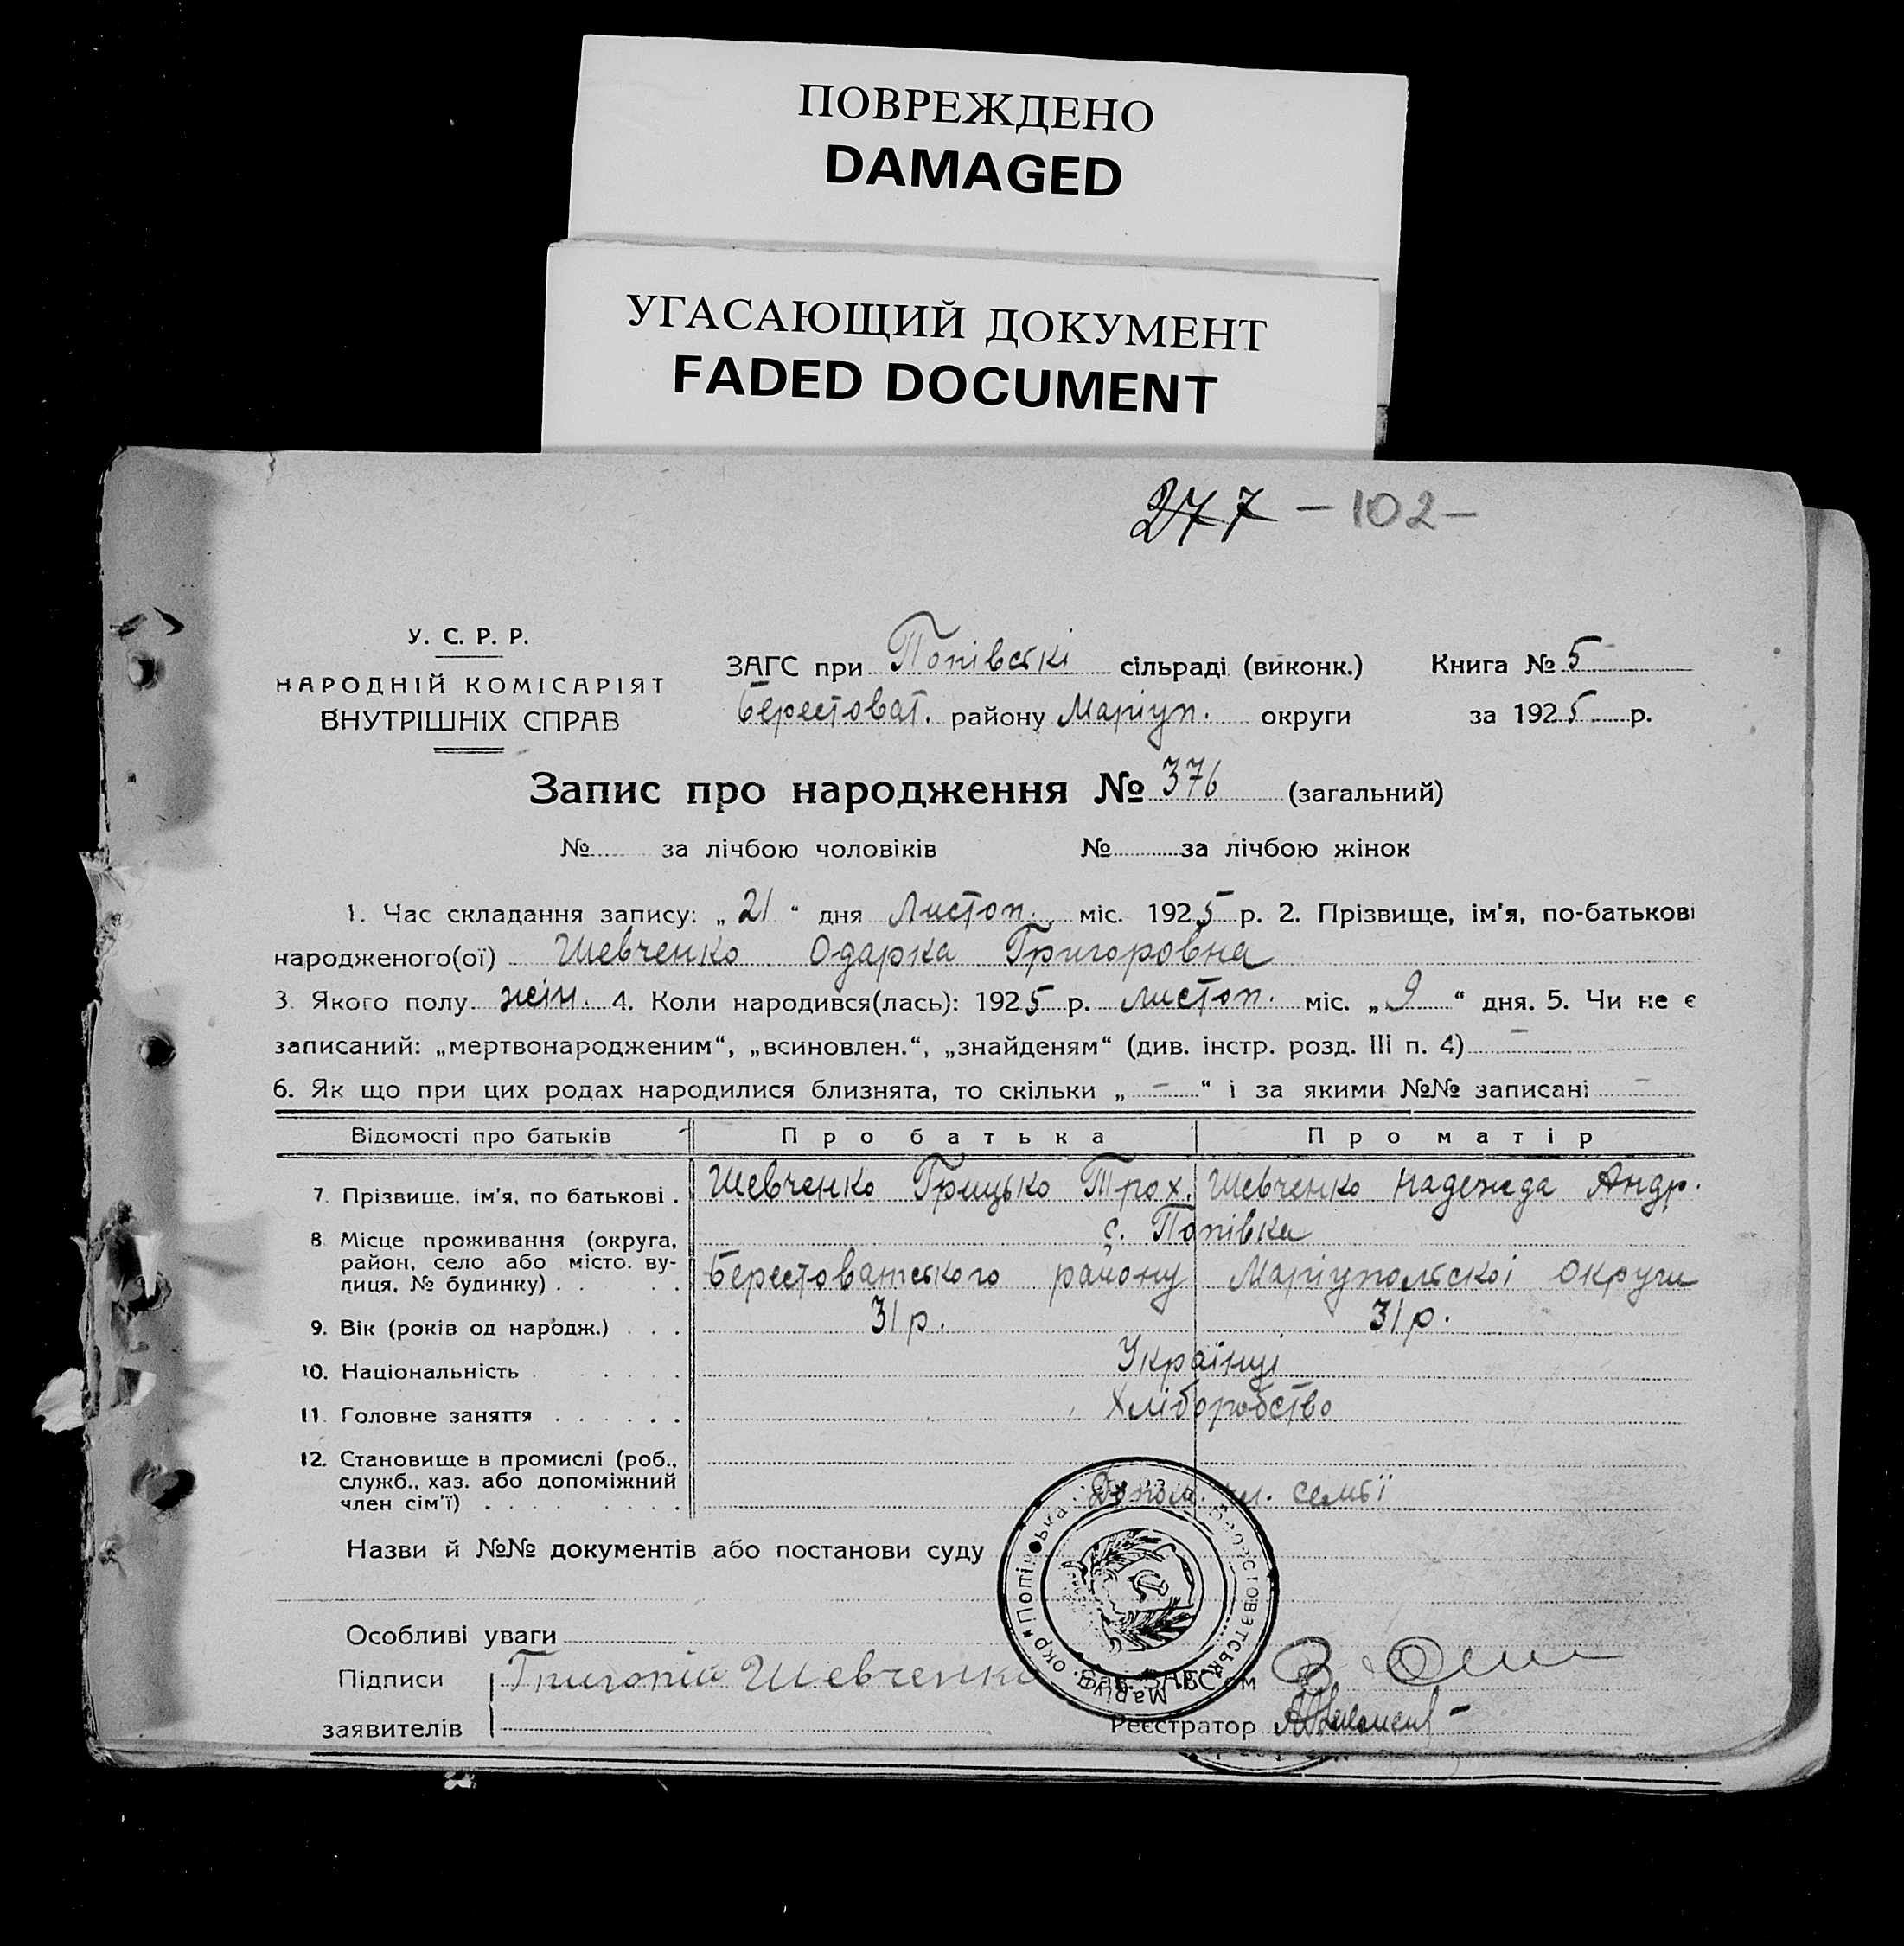 ПОВРЕЖДЕНО
DAMAGED
УГАСАЮЩИЙ ДОКУМЕНТ
FADED DOCUMENT
277 – 102 –
У. С. Р. Р.
НАРОДНІЙ КОМІСАРІЯТ
ВНУТРІШНІХ СПРАВ
ЗАГС при Попівські сільраді (виконк.) Книга № 5
Берестоват. району Маріуп. округи за 1925 р.
Запис про народження № 376 (загальний)
№ за лічбою чоловіків № за лічбою жінок
1. Час складання запису: „21“ дня Листоп. міс. 1925 р. 2. Прізвище, ім'я, по-батькові
народженого(ої) Шевченко Одарка Григоровна
3. Якого полу жін. 4. Коли народився(лась): 1925 р. листоп. міс. „9“ дня. 5. Чи не є
записаний: „мертвонародженим“, „всиновлен.“, „знайденям“ (див. інстр. розд. III п. 4) –
6. Як що при цих родах народилися близнята, то скільки „–“ і за якими №№ записані –
Відомості про батьків Про батька Про матір
7. Прізвище, ім'я, по батькові . Шевченко Грицько Трох. Шевченко Надежда Андр.
8. Місце проживання (округа, с. Попівка
район, село або місто, ву-
лиця, № будинку) . . . . Берестоватського району Маріупольскої Округи
9. Вік (років од народж.) . . . 31 р. 31 р.
10. Національність . . . . . Українці
11. Головне заняття . . . . . Хліборобство
12. Становище в промислі (роб.,
служб., хаз. або допоміжний
член сім'ї) . . . . . . . . . Допом. чл. семьї
Назви й №№ документів або постанови суду
Особливі уваги
Підписи Григорій Шевченко Зав. ЗАГС'ом
заявителів Реєстратор